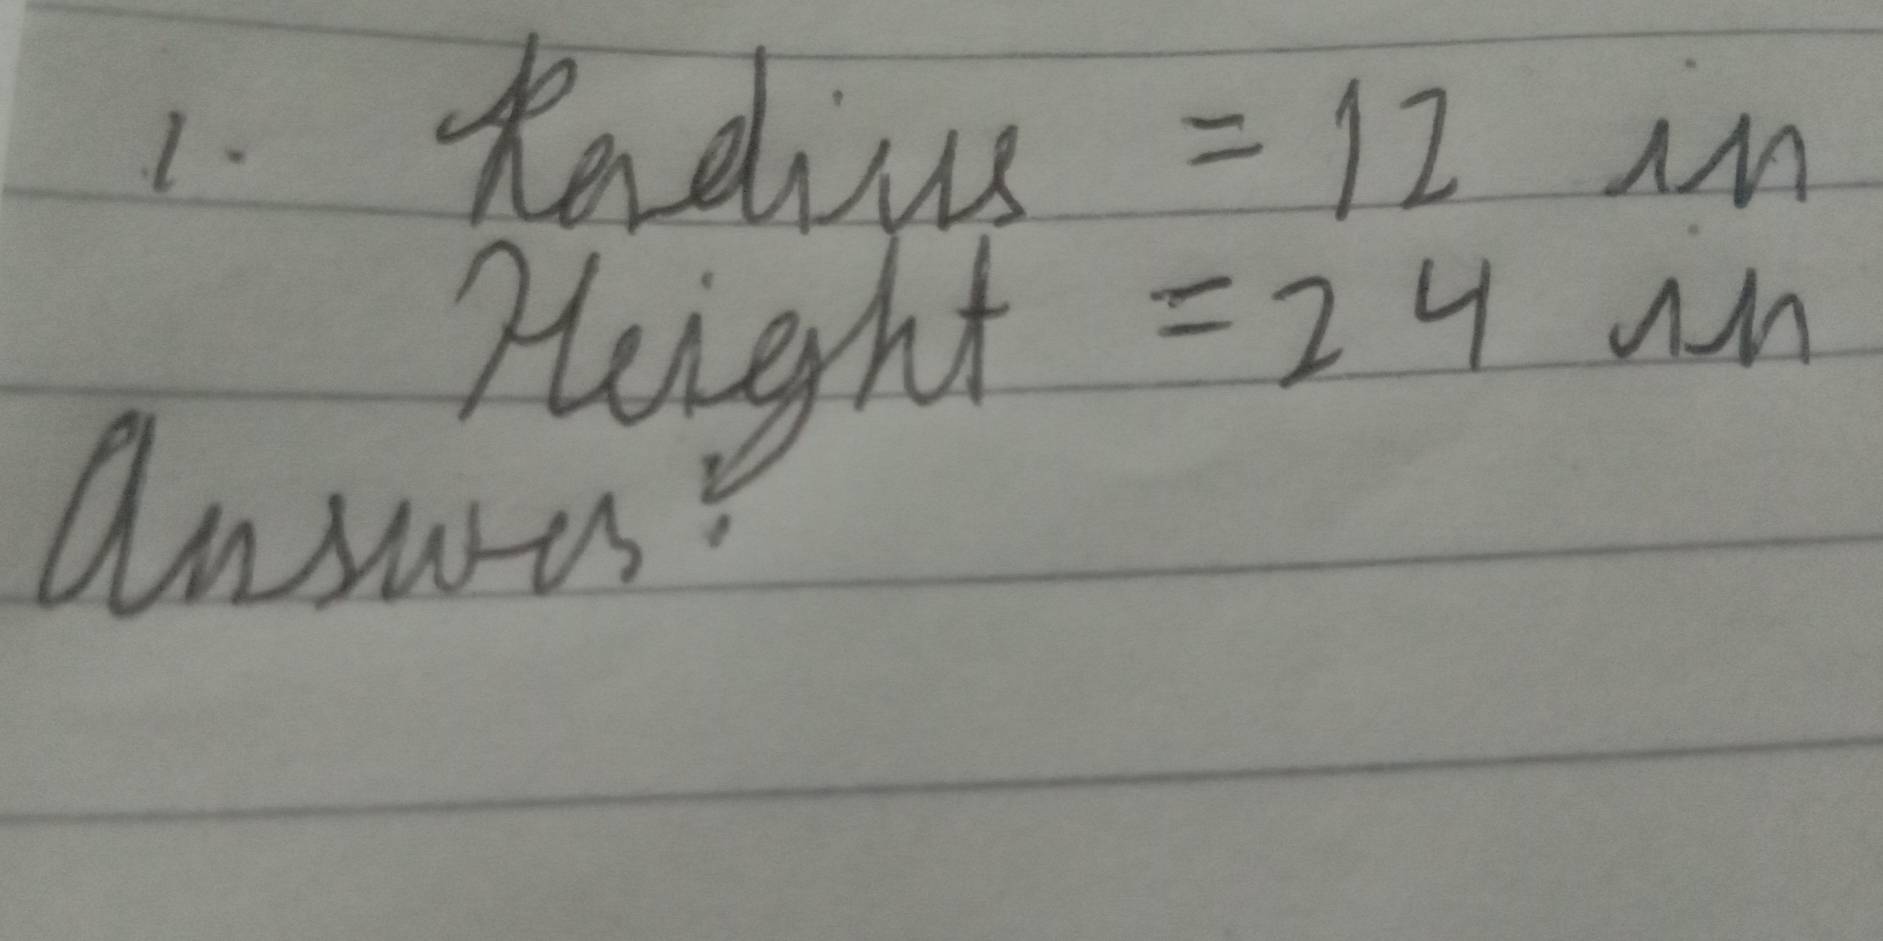 1. Radius = 12 in
Height = 24 in
Answer: